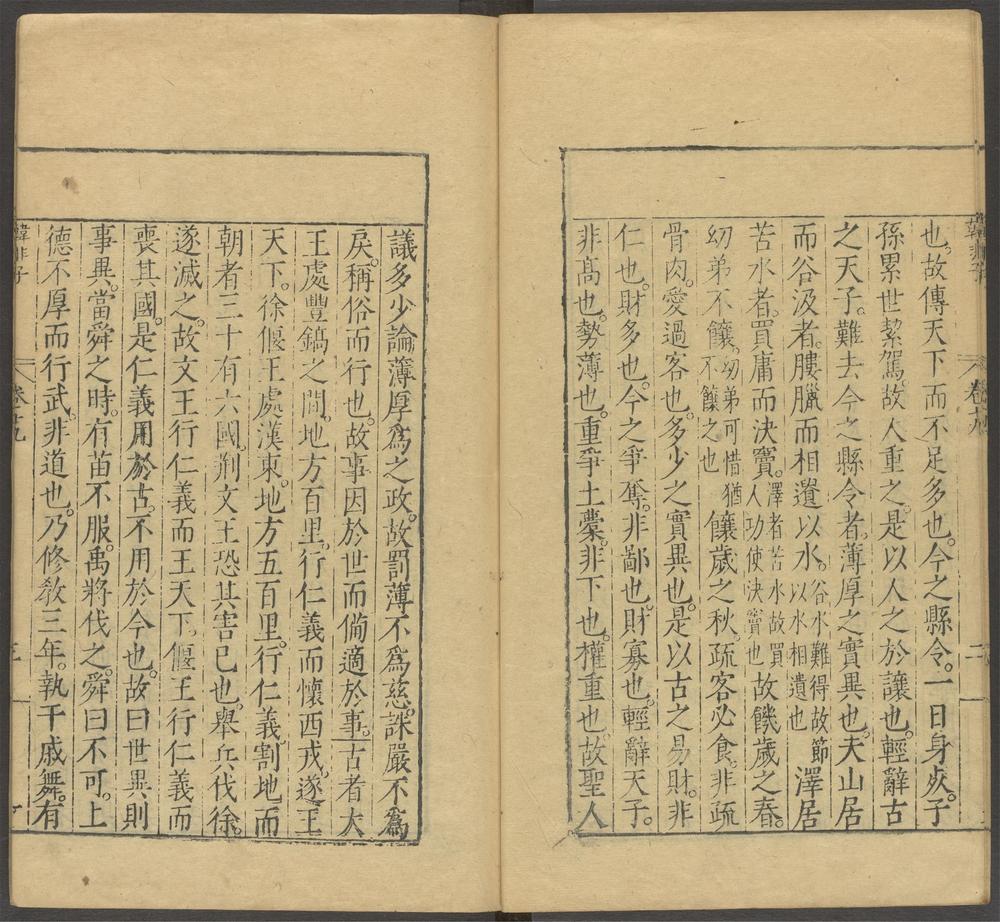 韓非子 卷十九 二
也。故傳天下而不足多也。今之縣令。一日身死。子
孫累世絜駕。故人重之。是以人之於讓也。輕辭古
之天子。難去今之縣令者。薄厚之實異也。夫山居
而谷汲者。膢臘而相遺以水。谷水難得故節以水相遺也澤居
苦水者。買庸而決竇。澤者苦水故買人功使決竇也故饑歲之春。
㓜弟不饟。㓜弟可惜猶不饟之也饟歲之秋。疏客必食。非疏
骨肉。愛過客也。多少之實異也。是以古之易財。非
仁也。財多也。今之爭奪。非鄙也。財寡也。輕辭天子。
非髙也。勢薄也。重爭土橐。非下也。權重也。故聖人
議多少論薄厚爲之政。故罰薄不爲慈。誅嚴不爲
戾。稱俗而行也。故事因於世而備適於事。古者大
王處豐鎬之間。地方百里。行仁義而懷西戎。遂王
天下。徐偃王處漢東。地方五百里。行仁義。割地而
朝者三十有六國。荆文王恐其害己也。舉兵伐徐。
遂滅之。故文王行仁義而王天下。偃王行仁義而
喪其國。是仁義用於古。不用於今也。故曰世異則
事異。當舜之時。有苗不服。禹將伐之。舜曰不可。上
德不厚而行武。非道也。乃修敎三年。執干戚舞。有
韓非子 卷十九